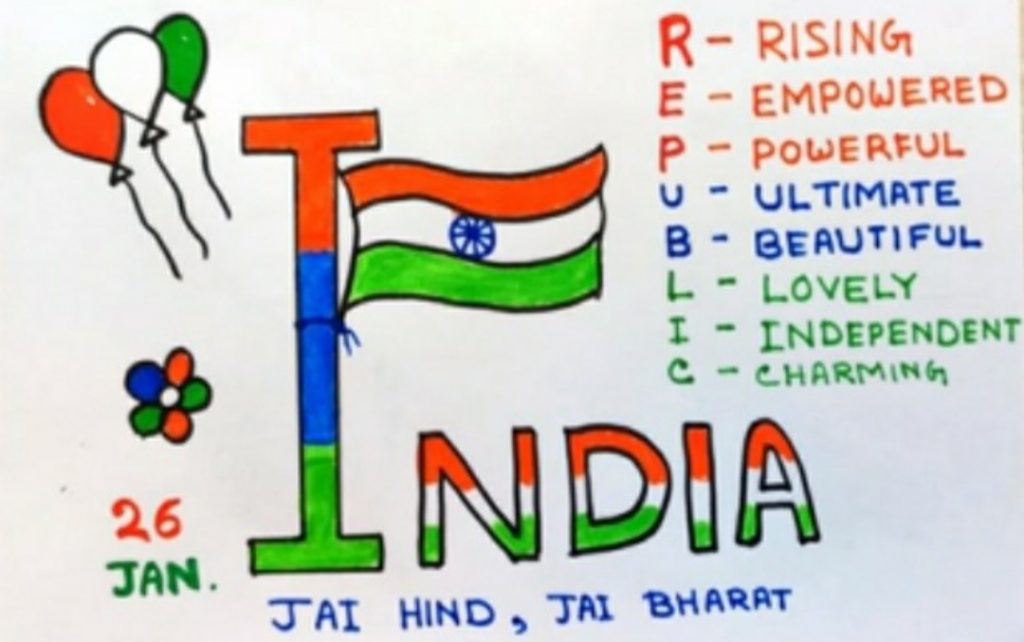 R - RISING
E - EMPOWERED
P - POWERFUL
U - ULTIMATE
B - BEAUTIFUL
L - LOVELY
I - INDEPENDENT
C - CHARMING
INDIA
26
JAN.
JAI HIND, JAI BHARAT